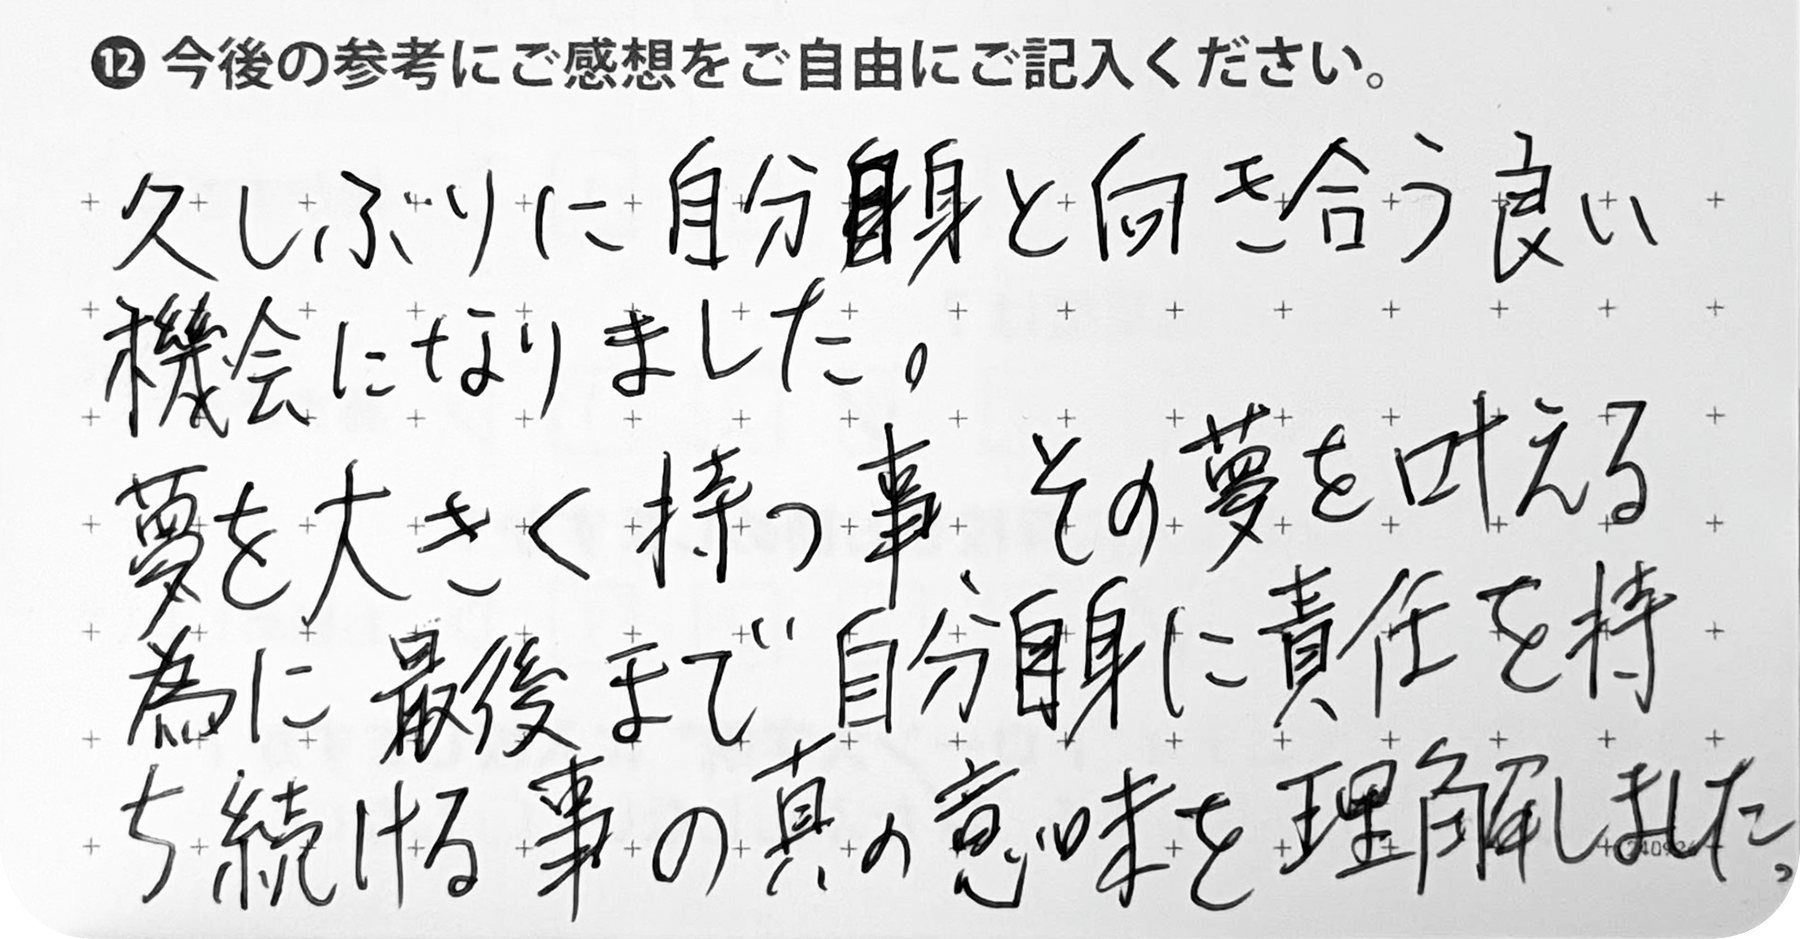 ⓬ 今後の参考にご感想をご自由にご記入ください。
久しぶりに自分自身と向き合う良い
機会になりました。
夢を大きく持つ事、その夢を叶える
為に最後まで自分自身に責任を持
ち続ける事の真の意味を理解しました。